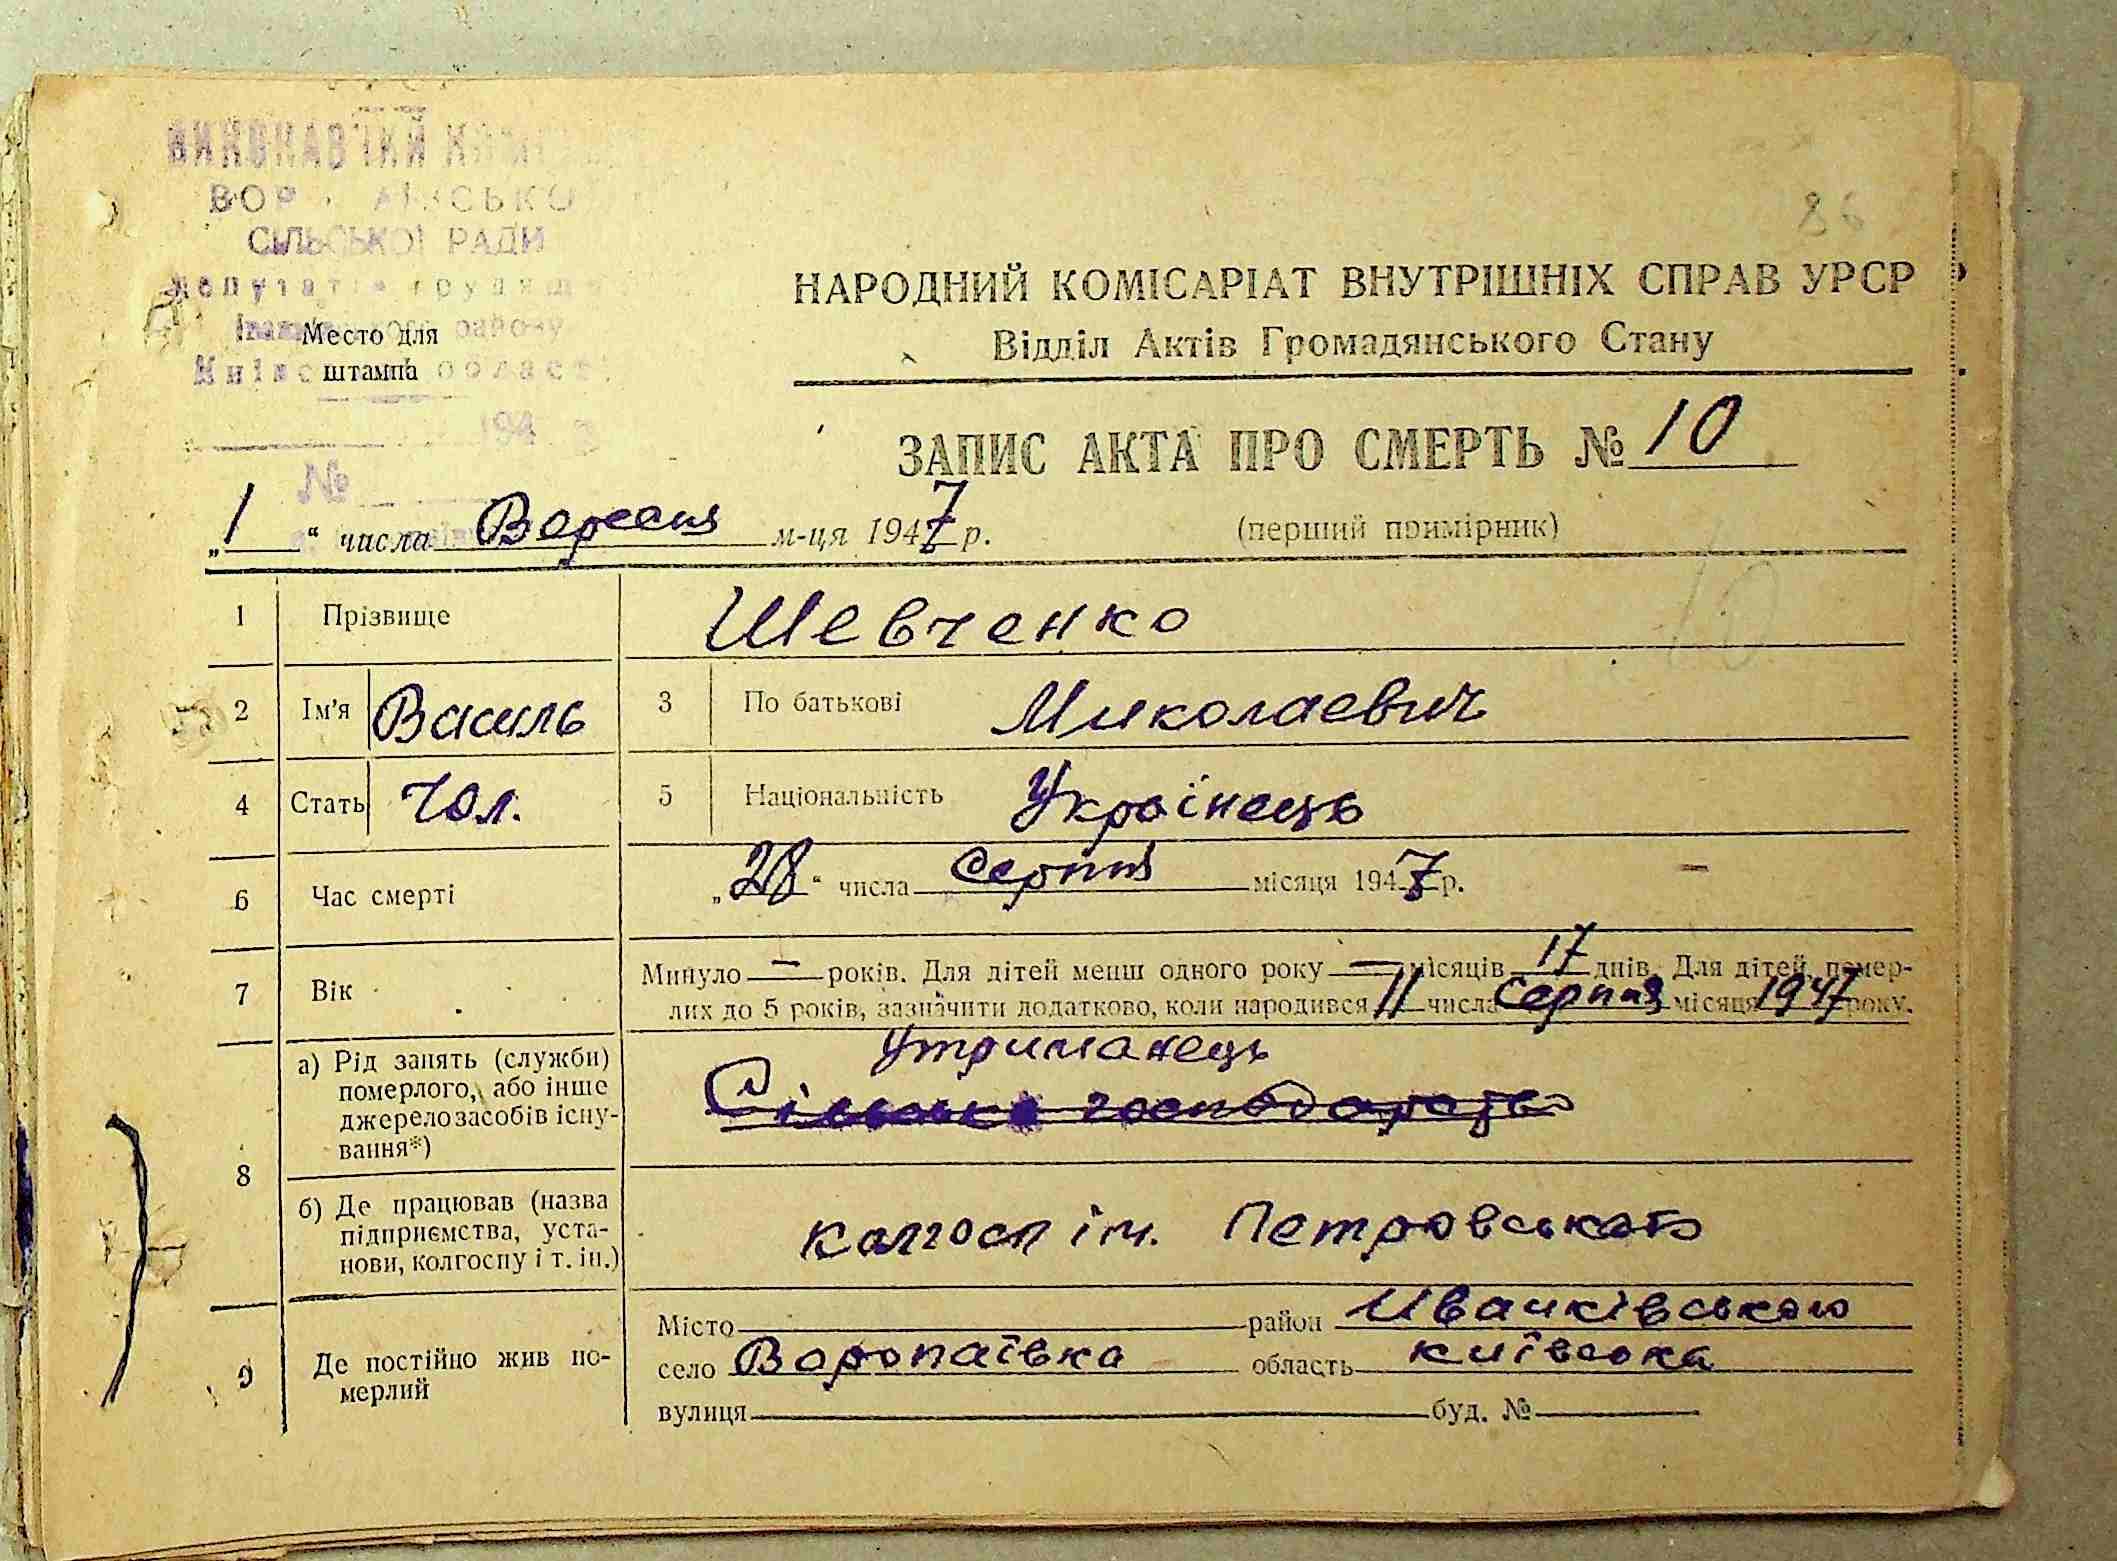 ВИКОНАВЧИЙ
СІЛЬСЬКОЇ РАДИ
депутатів трудящ
району
Место для
штампа
Київс област
194
№
86
НАРОДНИЙ КОМІСАРІАТ ВНУТРІШНІХ СПРАВ УРСР
Відділ Актів Громадянського Стану
ЗАПИС АКТА ПРО СМЕРТЬ № 10
„1“ числа Вересня м-ця 1947 р.
(перший примірник)
10
1 Прізвище Шевченко
2 Ім'я Василь 3 По батькові Миколаевич
4 Стать Чол. 5 Національність Украінець
6 Час смерті „28“ числа Серпня місяця 1947 р.
7 Вік Минуло — років. Для дітей менш одного року — місяців 17 днів. Для дітей, помер-
лих до 5 років, зазначити додатково, коли народився 11 числа Серпня місяця 1947 року.
8 а) Рід занять (служби)
померлого, або інше
джерело засобів існу-
вання*)
Утриманець
Сільське господарство
б) Де працював (назва
підприємства, уста-
нови, колгоспу і т. ін.)
Колгосп ім. Петровського
9 Де постійно жив по-
мерлий
Місто район Иванківського
село Воропаївка область Київська
вулиця буд. №